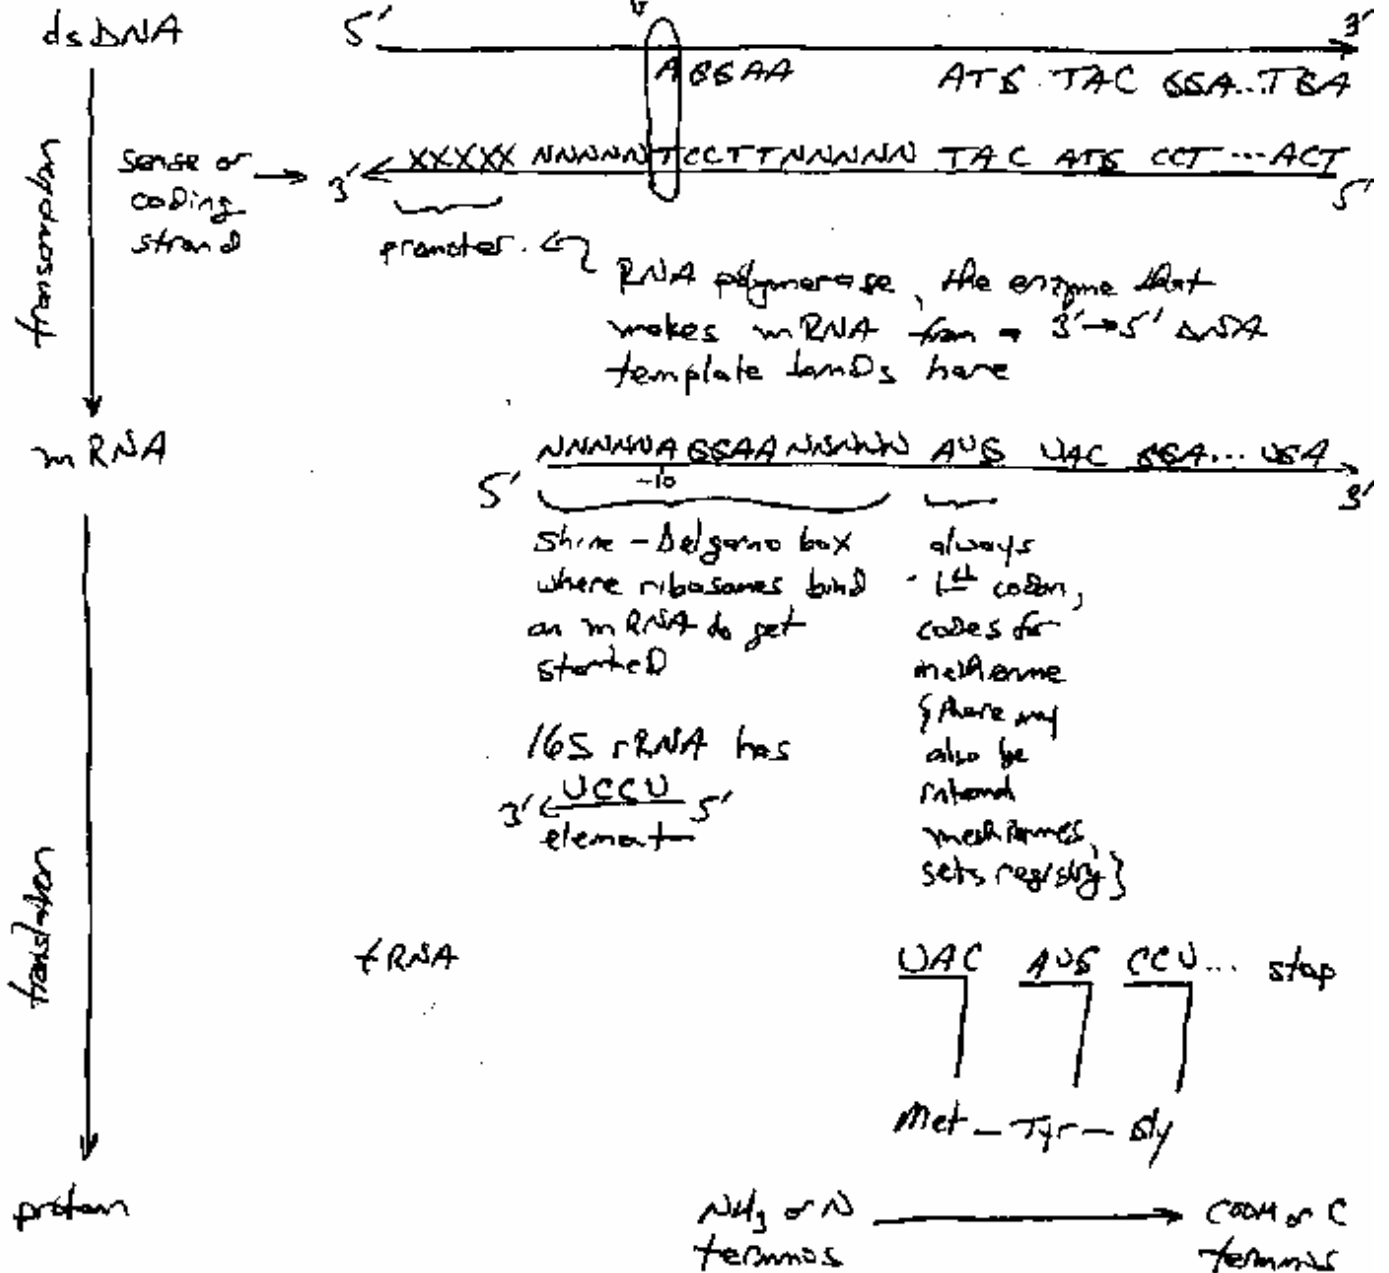 dsDNA 5' 3'
A GGAA ATG TAC GGA...TGA
Sense or
coding
strand
3' XXXXX NNNNN T CCTT NNNNN TAC ATG CCT ... ACT 5'
promoter.
RNA polymerase, the enzyme that
makes mRNA from a 3'→5' DNA
template lands here
transcription
mRNA
5' NNNNNA GGAA NNNNN AUG UAC GGA... UGA 3'
-10
Shine-Delgarno box
where ribosomes bind
on mRNA to get
started
16S rRNA has
3' UCCU 5'
element
always
1st codon,
codes for
{there may
also be
internal
sets registry}
translation
tRNA
UAC AUG CCU... stop
Met - Tyr - Gly
protein
NH3 or N
terminos
COOH or C
terminos